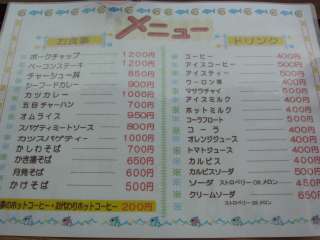 メニュー
お食事
ポークチャップ 1200円
ベーコンステーキ 1200円
チャーシュー丼 850円
シーフードカレー 900円
カツカレー 1000円
五目チャーハン 700円
オムライス 950円
スパゲティミートソース 800円
カツスパゲティー 1000円
かしわそば 700円
かき揚そば 650円
月見そば 600円
かけそば 500円
のホットコーヒー・おかわりホットコーヒー 200円
ドリンク
コーヒー 400円
アイスコーヒー 500円
アイスティー 500円
ウーロン茶 400円
マサラチャイ 500円
アイスミルク 400円
ホットミルク 400円
コーラフロート 500円
コーラ 400円
オレンジジュース 400円
トマトジュース 400円
カルピス 400円
カルピスソーダ 500円
ソーダ ストロベリー OR メロン 450円
クリームソーダ 650円
ストロベリー OR メロン